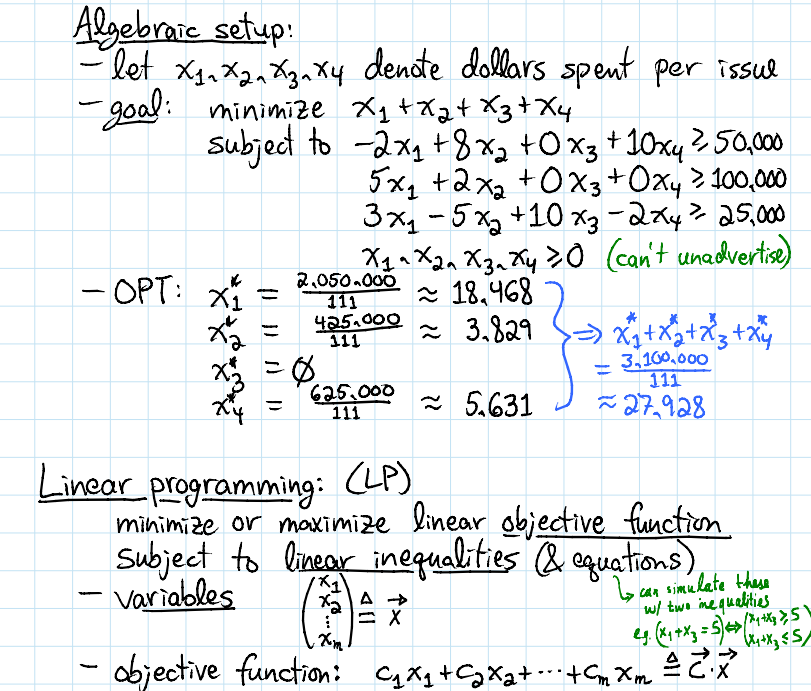 Algebraic setup:
- let x₁, x₂, x₃, x₄ denote dollars spent per issue
- goal: minimize x₁ + x₂ + x₃ + x₄
subject to -2x₁ + 8x₂ + 0x₃ + 10x₄ ≥ 50,000
5x₁ + 2x₂ + 0x₃ + 0x₄ ≥ 100,000
3x₁ - 5x₂ + 10x₃ - 2x₄ ≥ 25,000
x₁, x₂, x₃, x₄ ≥ 0 (can't unadvertise)
- OPT: x₁* = 2,050,000/111 ≈ 18,468
x₂* = 425,000/111 ≈ 3,829
x₃* = 0
x₄* = 625,000/111 ≈ 5,631
⇒ x₁* + x₂* + x₃* + x₄*
= 3,100,000/111
≈ 27,928
Linear programming: (LP)
minimize or maximize linear objective function
subject to linear inequalities (& equations)
↳ can simulate these
w/ two inequalities
e.g. (x₁+x₃ = 5) ⇔ (x₁+x₃ ≥ 5
x₁+x₃ ≤ 5)
- variables (x₁ x₂ ⋮ xₘ) ≜ x⃗
- objective function: c₁x₁ + c₂x₂ + ⋯ + cₘxₘ ≜ c⃗·x⃗